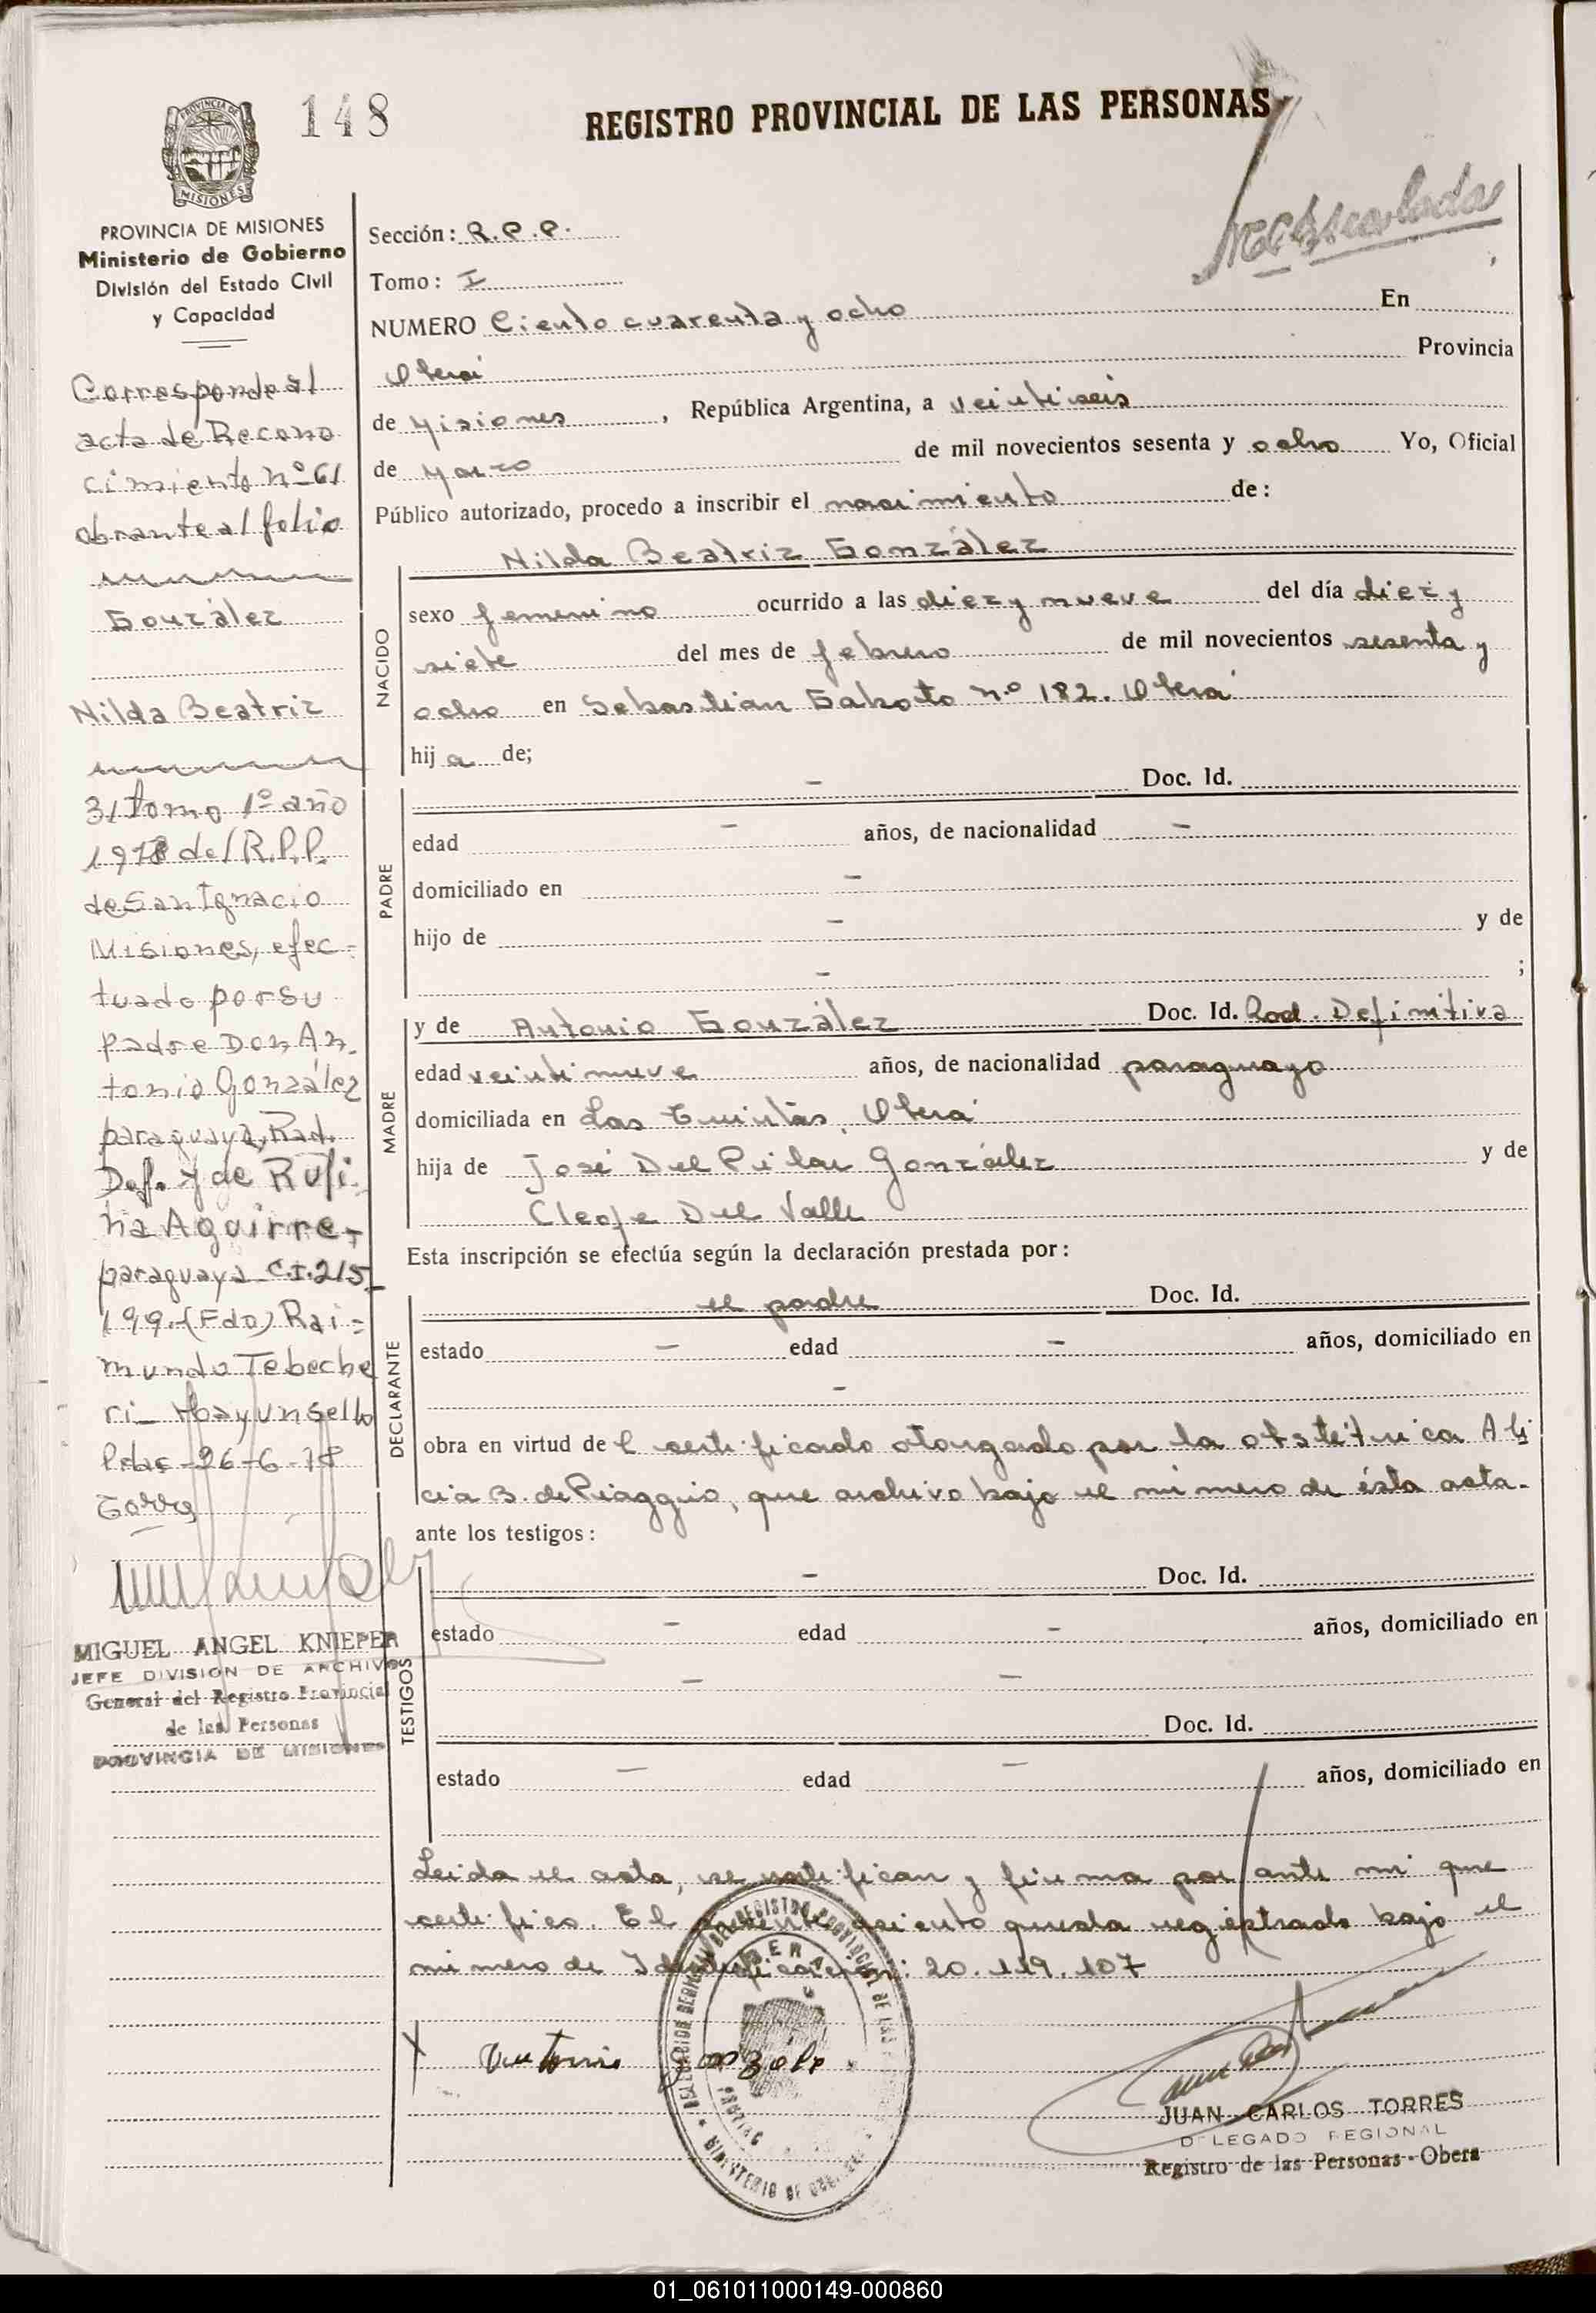 148
REGISTRO PROVINCIAL DE LAS PERSONAS
PROVINCIA DE
MISIONES
PROVINCIA DE MISIONES
Ministerio de Gobierno
División del Estado Civil
y Capacidad
Corresponde al
acta de Recono
cimiento nº 61
obrante al folio
González
Nilda Beatriz
31 tomo 1º año
1978 del R.P.P.
de San Ignacio
Misiones, efec-
tuado por su
padre Don An-
tonio González
paraguayo, Rad.
Def. y de Rufi-
na Aguirre-
paraguaya C.I. 215.
199.-(Fdo) Rai=
mundo Tebeche
ri- Hay un sello
Pdas-26-6-78
MIGUEL ANGEL KNIEPER
JEFE DIVISION DE ARCHIVO
General del Registro Provincial
de las Personas
PROVINCIA DE MISIONES
Sección: R.P.P.
Tomo: I
NUMERO Ciento cuarenta y ocho En
Oberá Provincia
de Misiones, República Argentina, a veintiseis
de Marzo de mil novecientos sesenta y ocho Yo, Oficial
Público autorizado, procedo a inscribir el nacimiento de:
Nilda Beatriz González
NACIDO
sexo femenino ocurrido a las diez y nueve del día diez y
siete del mes de febrero de mil novecientos sesenta y
ocho en Sebastian Gaboto n.º 182. Oberá
hija de;
PADRE
- Doc. Id.
edad - años, de nacionalidad -
domiciliado en -
hijo de - y de
- ;
MADRE
y de Antonio González Doc. Id. Rad. Definitiva
edad veintinueve años, de nacionalidad paraguayo
domiciliada en Las Quintas, Oberá
hija de José Del Pilar González y de
Cleofe Del Valle
Esta inscripción se efectúa según la declaración prestada por:
DECLARANTE
el padre Doc. Id.
estado - edad - años, domiciliado en
-
obra en virtud del certificado otorgado por la obstétrica Ali
cia B. de Piaggio, que archivo bajo el número de ésta acta.
ante los testigos:
TESTIGOS
- Doc. Id.
estado - edad - años, domiciliado en
- -
Doc. Id.
estado - edad - años, domiciliado en
Leida el acta, se ratifican y firma por ante mi que
certifico. El presente asiento queda registrado bajo el
número de Identificación: 20.119.107
X Antonio Gonzále
JUAN CARLOS TORRES
DELEGADO REGIONAL
Registro de las Personas - Obera
01_061011000149-000860